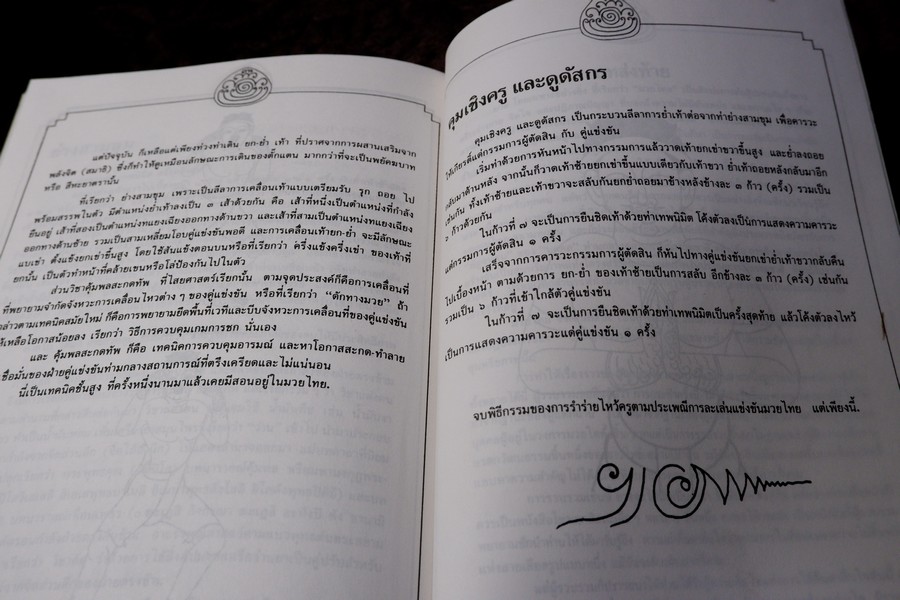 แต่ปัจจุบัน ก็เหลือแต่เพียงท่วงทำเดิน ยก-ย่ำ เท้า ที่ปราศจากการผสานเสริมจาก
พลังจิต (สมาธิ) ซึ่งก็ทำให้ดูเหมือนลักษณะการเดินของตั๊กแตน มากกว่าที่จะเป็นพยัคฆบาท
หรือ สีหะยาตรานั้น
ที่เรียกว่า ย่างสามขุม เพราะเป็นลีลาการเคลื่อนเท้าแบบเตรียมรับ รุก ถอย ไป
พร้อมสรรพในตัว มีตำแหน่งย่ำเท้าลงเป็น ๓ เส้าด้วยกัน คือ เส้าที่หนึ่งเป็นตำแหน่งที่กำลัง
ยืนอยู่ เส้าที่สองเป็นตำแหน่งทแยงเฉียงออกทางด้านขวา และเส้าที่สามเป็นตำแหน่งทแยง
ออกทางด้านซ้าย รวมเป็นสามเหลี่ยมโอบคู่แข่งขันพอดี และการเคลื่อนเท้ายก-ย่ำ จะมีลักษณะ
แบะเข่า ตั้งแข้งยกเข่าขึ้นสูง โดยใช้สันแข้งตอนบนหรือที่เรียกว่า ครึ่งแข้งครึ่งเข่า ของเท้าที่
ยกนั้น เป็นตัวทำหน้าที่คล้ายเขนหรือโล่ป้องกันไปในตัว
ส่วนวิชาคุ้มพลสะกดทัพ ที่ไสยศาสตร์เรียกนั้น ตามจุดประสงค์ก็คือการเคลื่อนที่
ที่พยายามจำกัดจังหวะการเคลื่อนไหวต่าง ๆ ของคู่แข่งขัน หรือที่เรียกว่า “ดักทางมวย” ถ้า
กล่าวตามเทคนิคสมัยใหม่ ก็คือการพยายามยึดพื้นที่เวทีและบีบจังหวะการเคลื่อนที่ของคู่แข่งขัน
ให้เหลือโอกาสน้อยลง เรียกว่า วิธีการควบคุมเกมการชก นั่นเอง
และ คุ้มพลสะกดทัพ ก็คือ เทคนิคการควบคุมอารมณ์ และหาโอกาสสะกด-ทำลาย
เชื่อมั่นของฝ่ายคู่แข่งขันท่ามกลางสถานการณ์ที่ตรึงเครียดและไม่แน่นอน
นี่เป็นเทคนิคชั้นสูง ที่ครั้งหนึ่งนานมาแล้วเคยมีสอนอยู่ในมวยไทย.
คุมเชิงครู และดูดัสกร
คุมเชิงครู และดูดัสกร เป็นกระบวนลีลาการย่ำเท้าต่อจากท่าย่างสามขุม เพื่อคารวะ
ให้เกียรติแด่กรรมการผู้ตัดสิน กับ คู่แข่งขัน
เริ่มทำด้วยการหันหน้าไปทางกรรมการแล้ววาดเท้ายกเข่าขวาขึ้นสูง และย่ำลงถอย
กลับมาด้านหลัง จากนั้นก็วาดเท้าซ้ายยกเข่าขึ้นแบบเดียวกับเท้าขวา ย่ำเท้าถอยหลังกลับมาอีก
เช่นกัน ทั้งเท้าซ้ายและเท้าขวาจะสลับกันยกย่ำถอยมาข้างหลังข้างละ ๓ ก้าว (ครั้ง) รวมเป็น
๖ ก้าวด้วยกัน
ในก้าวที่ ๗ จะเป็นการยืนชิดเท้าด้วยท่าเทพนิมิต โค้งตัวลงเป็นการแสดงความคารวะ
แด่กรรมการผู้ตัดสิน ๑ ครั้ง
เสร็จจากการคารวะกรรมการผู้ตัดสิน ก็หันไปทางคู่แข่งขันยกเข่าย่ำเท้าขวากลับคืน
ไปเบื้องหน้า ตามด้วยการ ยก-ย่ำ ของเท้าซ้ายเป็นการสลับ อีกข้างละ ๓ ก้าว (ครั้ง) เช่นกัน
รวมเป็น ๖ ก้าวที่เข้าใกล้ตัวคู่แข่งขัน
ในก้าวที่ ๗ จะเป็นการยืนชิดเท้าด้วยท่าเทพนิมิตเป็นครั้งสุดท้าย แล้วโค้งตัวลงไหว้
เป็นการแสดงความคารวะแด่คู่แข่งขัน ๑ ครั้ง
จบพิธีกรรมของการรำร่ายไหว้ครูตามประเพณีการละเล่นแข่งขันมวยไทย แต่เพียงนี้.